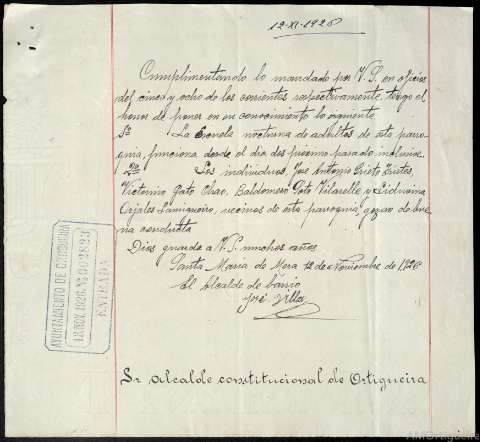 12-XI-1926
Cumplimentando lo mandado por V.S. en oficios
del cinco y ocho de los corrientes respectivamente, tengo el
honor de poner en su conocimiento lo siguiente
1º La Escuela nocturna de adultos de esta parro-
quia, funciona desde el dia dos próximo pasado inclusive.
2º Los individuos, José Antonio Prieto
Victorino Gato Chao, Baldomero Soto Vilarelle y Liduvina
Orjales, vecinos de esta parroquia, gozan de bue-
na conducta
Dios guarde a V.S. muchos años
Santa Maria de Mera 12 de Noviembre de 1,926
El Alcalde de barrio
José Villa
Sr alcalde constitucional de Ortigueira
AYUNTAMIENTO DE ORTIGUEIRA
13.NOV.1926 2823
ENTRADA
AMOrtigueira